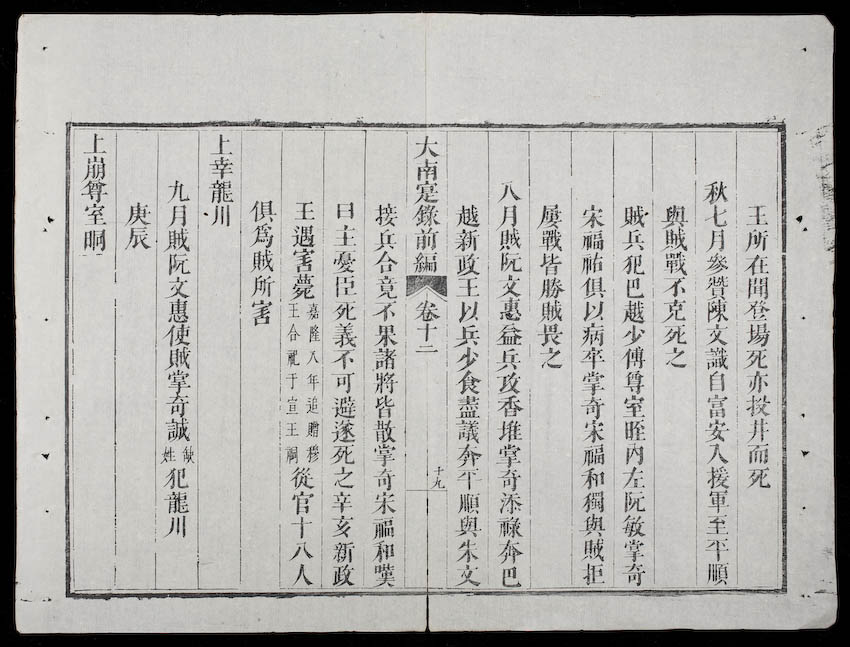 王所在聞登場死亦投井而死
秋七月參贊陳文識自富安入援軍至平順
與賊戰不克死之
賊兵犯巴越少傅尊室晊內左阮敏掌奇
宋福祐俱以病卒掌奇宋福和獨與賊拒
屢戰皆勝賊畏之
八月賊阮文惠益兵攻香堆掌奇添祿奔巴
越新政王以兵少食盡議奔平順與朱文
大南寔錄前編 卷十二 十九
接兵合竟不果諸將皆散掌奇宋福和嘆
曰主憂臣死義不可避遂死之辛亥新政
王遇害薨嘉隆八年追贈穆
王合祀于宣王嗣從官十八人
俱爲賊所害
上幸龍川
九月賊阮文惠使賊掌奇誠缺
姓犯龍川
庚辰
上崩尊室晍